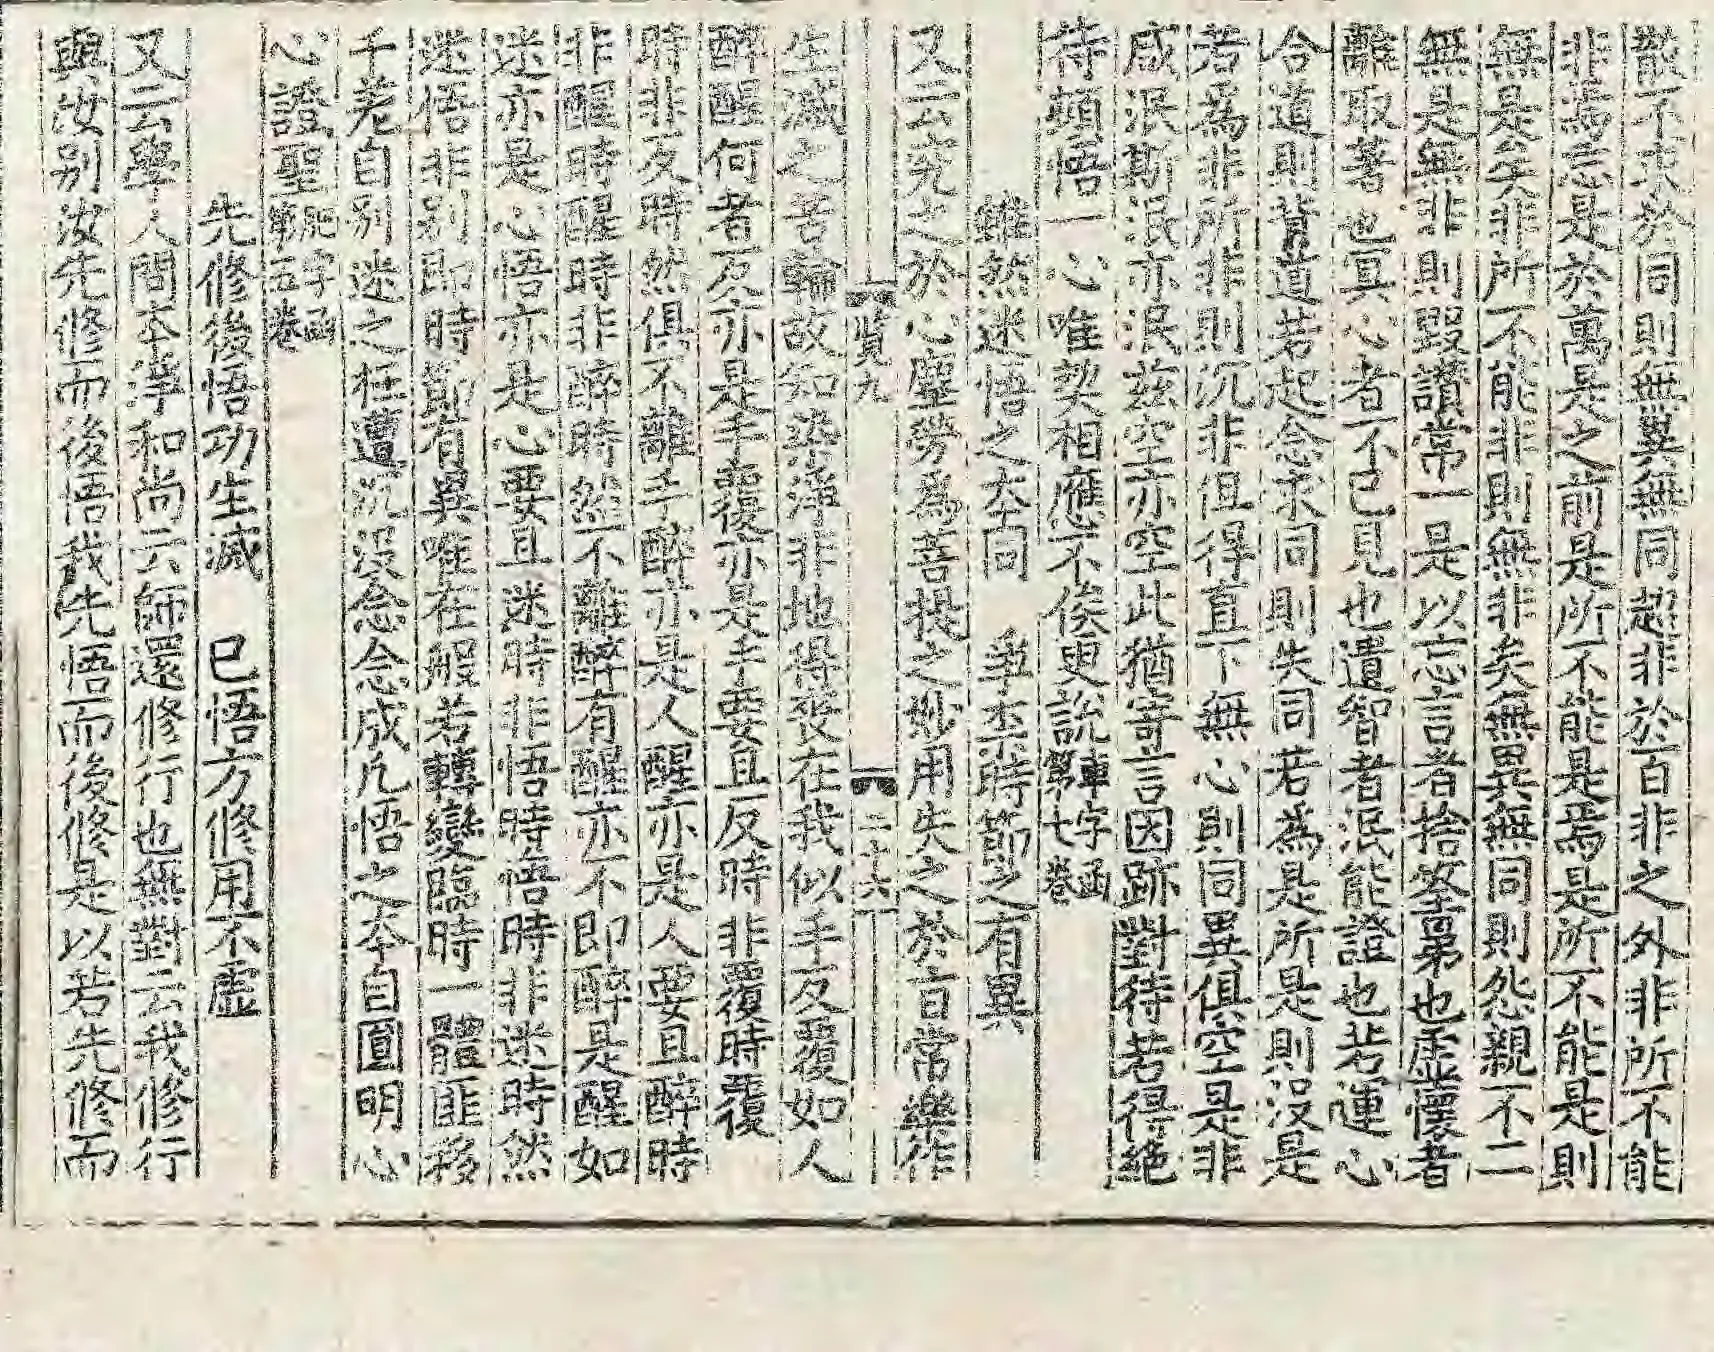 散不求於同則無異無同超非於百非之外非所不能
非焉忘是於萬是之前是所不能是焉是所不能是則
無是矣非所不能非則無非矣無異無同則怨親不二
無是無非則毀讃常一是以忘言者捨筌第也虛懷者
離取著也冥心者不已見也遣智者泯能證也若運心
合道則背道若起念求同則失同若為是所是則沒是
若為非所非則沉非但得直下無心則同異俱空是非
咸泯斯泯亦泯茲空亦空此猶寄言因跡對待若得絕
待頓悟一心唯契相應不俟更說車字函第七卷
雖然迷悟之本同　爭柰時節之有異
又云究之於心塵勞為菩提之妙用失之於旨常樂作
寶九　二十六
生滅之苦輪故知染淨非他得喪在我似手反覆如人
醉醒何者反亦是手覆亦是手要且反時非覆時覆
時非反時然俱不離手醉亦是人醒亦是人要且醉時
非醒時醒時非醉時然不離醉有醒亦不即醉是醒如
迷亦是心悟亦是心要且迷時非悟時悟時非迷時然
迷悟非別即時節有異唯在般若轉變臨時一體匪移
千差自別迷之枉遭沉沒念念成凡悟之本自圓明心
心證聖軍字函第五卷
先修後悟功生滅　已悟方修用不虛
又云學人問本淨和尚云師還修行也無對云我修行
與汝別汝先修而後悟我先悟而後修是以若先修而